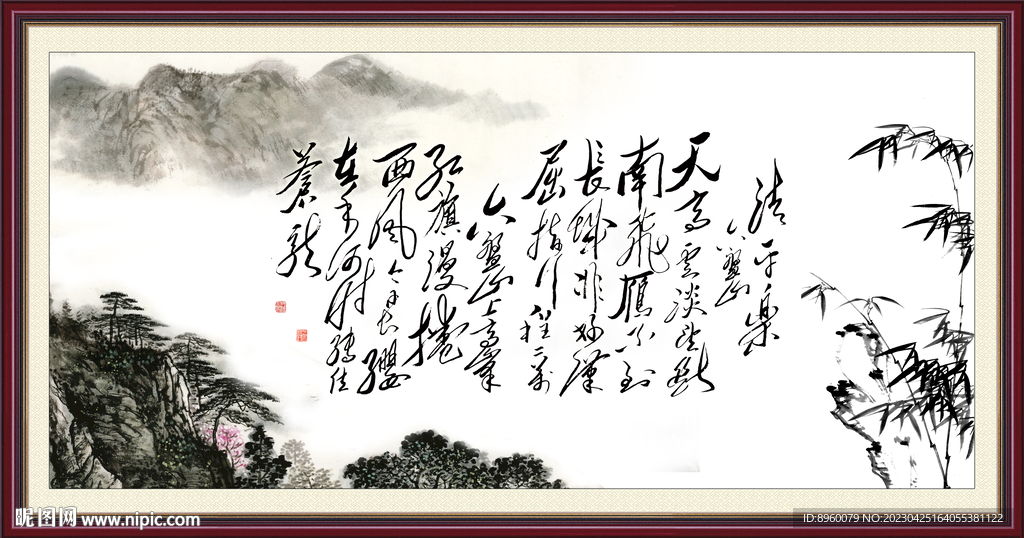 清平樂
六盤山
天高雲淡望斷
南飛雁不到
長城非好漢
屈指行程二萬
六盤山上高峯
紅旗漫捲
西風今日長纓
在手何时縛住
蒼龍
昵图网 www.nipic.com
ID:8960079 NO:20230425164055381122